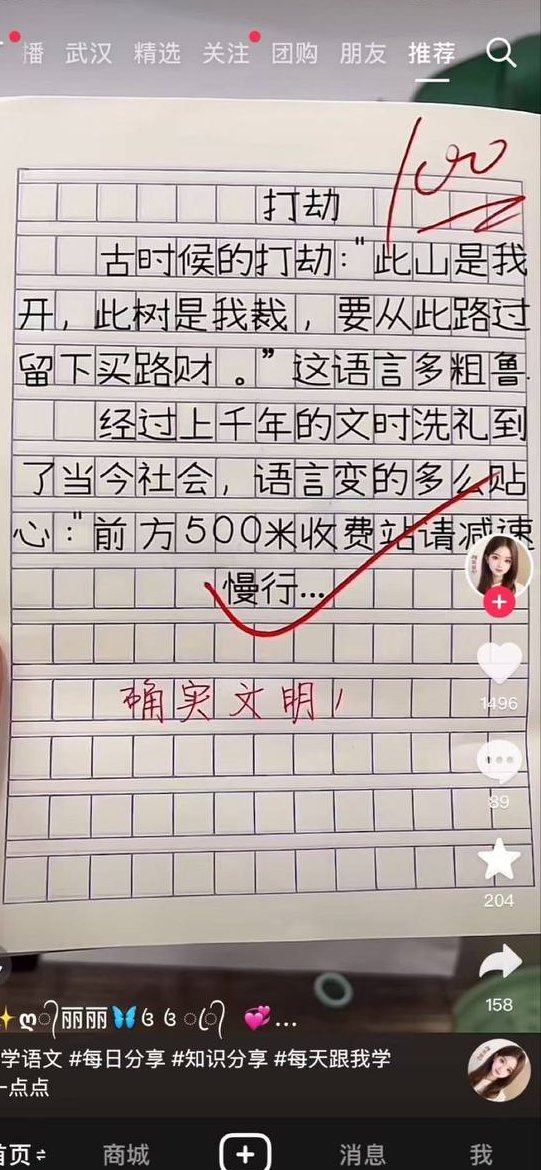 播 武汉 精选 关注 团购 朋友 推荐
100
打劫
古时候的打劫："此山是我
开，此树是我裁，要从此路过
留下买路财。"这语言多粗鲁.
经过上千年的文时洗礼到
了当今社会，语言变的多么贴
心："前方500米收费站请减速
慢行...
确实文明！
1496
89
204
158
丽丽🦋 💞...
学语文 #每日分享 #知识分享 #每天跟我学
一点点
首页 商城 消息 我